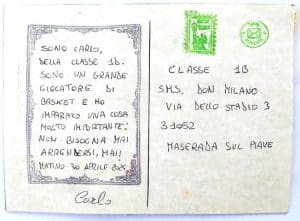 SONO CARLO,
DELLA CLASSE 1D.
SONO UN GRANDE
GIOCATORE DI
BASKET E HO
IMPARATO UNA COSA
MOLTO IMPORTANTE:
NON BISOGNA MAI
ARRENDERSI, MAI!
MATINO 30 APRILE
Carlo
CLASSE 1B
S.M.S. DON MILANO
VIA DELLO STADIO 3
31052
MASERADA SUL PIAVE